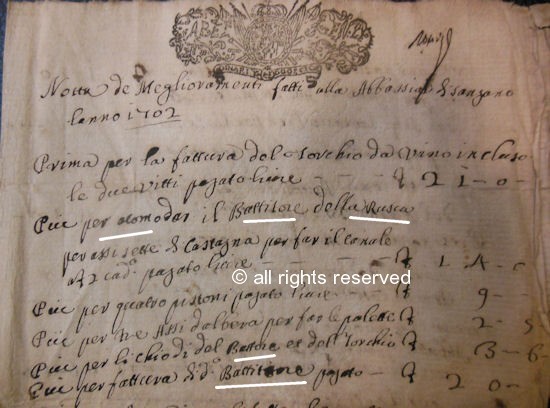 Notta de Meglioramenti fatti alla Abbassia di Sanzano
lanno 1702
Prima per la fattura del Torchio da Vino incluso
le due Vitti pagato lire 21-0-
Più per acomodar il Battitore della Rusca
per assi sette di Castagna per far il canale
pagato lire
© all rights reserved
Più per quattro pistoni pagato lire 9-
Più per tre Assi d'albera per far le palette 2-5-
Più per li chiodi del Battore et dell Torchio 3-6-
Più per fattura di d.º Battitore pagato 20-